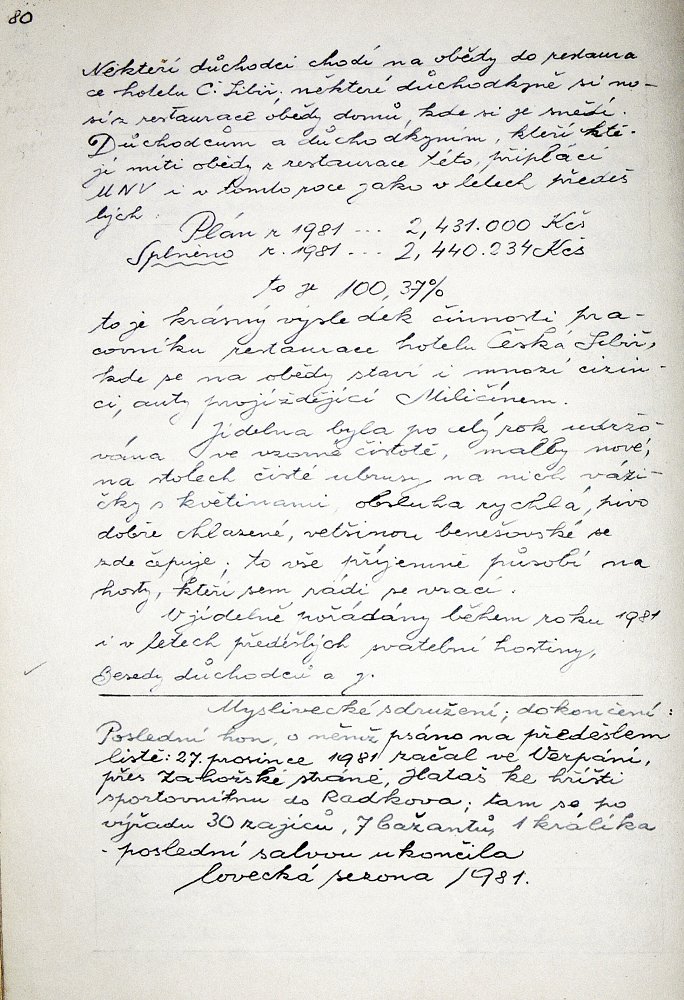 80
Někteří důchodci chodí na obědy do restaura
ce hotelu Č. Sibiř. některé důchodkyně si no-
sí z restaurace obědy domů, kde si je snědí.
Důchodcům a důchodkyním, kteří chtě-
jí míti obědy z restaurace této, připlácí
MNV i v tomto roce jako v létech předeš
lých.
Plán r 1981 --- 2,431.000 Kčs
Splněno r. 1981 --- 2,440.234 Kčs
to je 100,37%
to je krásný výsledek činnosti pra-
covníku restaurace hotelu Česká Sibiř,
kde se na obědy staví i mnozí cizin-
ci, auty projíždějící Miličínem.
Jídelna byla po celý rok udržo-
vána ve vzorné čistotě, malby nové,
na stolech čisté ubrusy, na nich vázi-
čky s květinami, obsluha rychlá, pivo
dobře chlazené, většinou benešovské se
zde čepuje; to vše příjemně působí na
hosty, kteří sem rádi se vrací.
V jídelně pořádány během roku 1981
i v letech předešlých svatební hostiny,
Besedy důchodců a j.
Myslivecké sdružení; dokončení:
Poslední hon, o němž psáno na předešlem
listě: 27. prosince 1981 začal ve Verpáni,
přes Zahořské stráně, Hataš ke hřišti
sportovnímu do Radkova; tam se po
výřadu 30 zajíců, 7 bažantů, 1 králíka
- poslední salvou ukončila
lovecká sezona 1981.